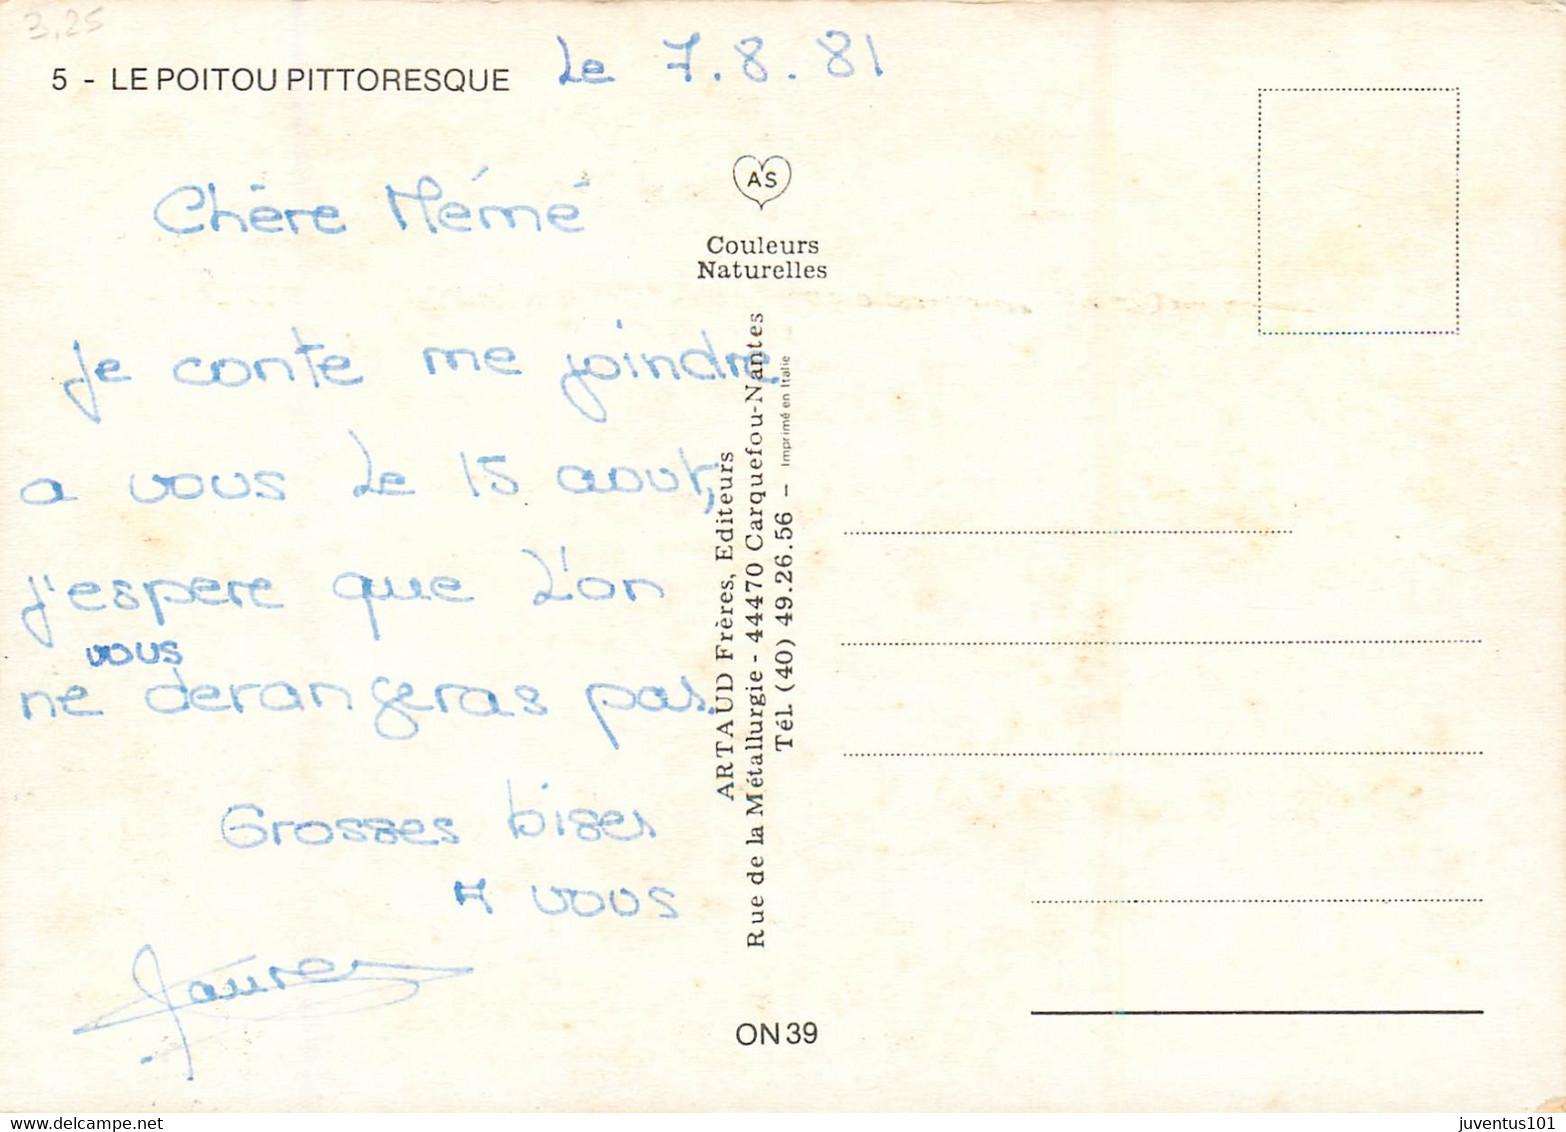 3,25
5 - LE POITOU PITTORESQUE
Le 7.8.81
Chère Mémé
Je conte me joindre
a vous Le 15 aout,
j'espere que L'on
ne vous derangeras pas.
Grosses bises
a vous
AS
Couleurs
Naturelles
ARTAUD Frères, Editeurs
Rue de la Métallurgie - 44470 Carquefou-Nantes
Tél. (40) 49.26.56 – Imprimé en Italie
ON 39
delcampe.net
juventus101